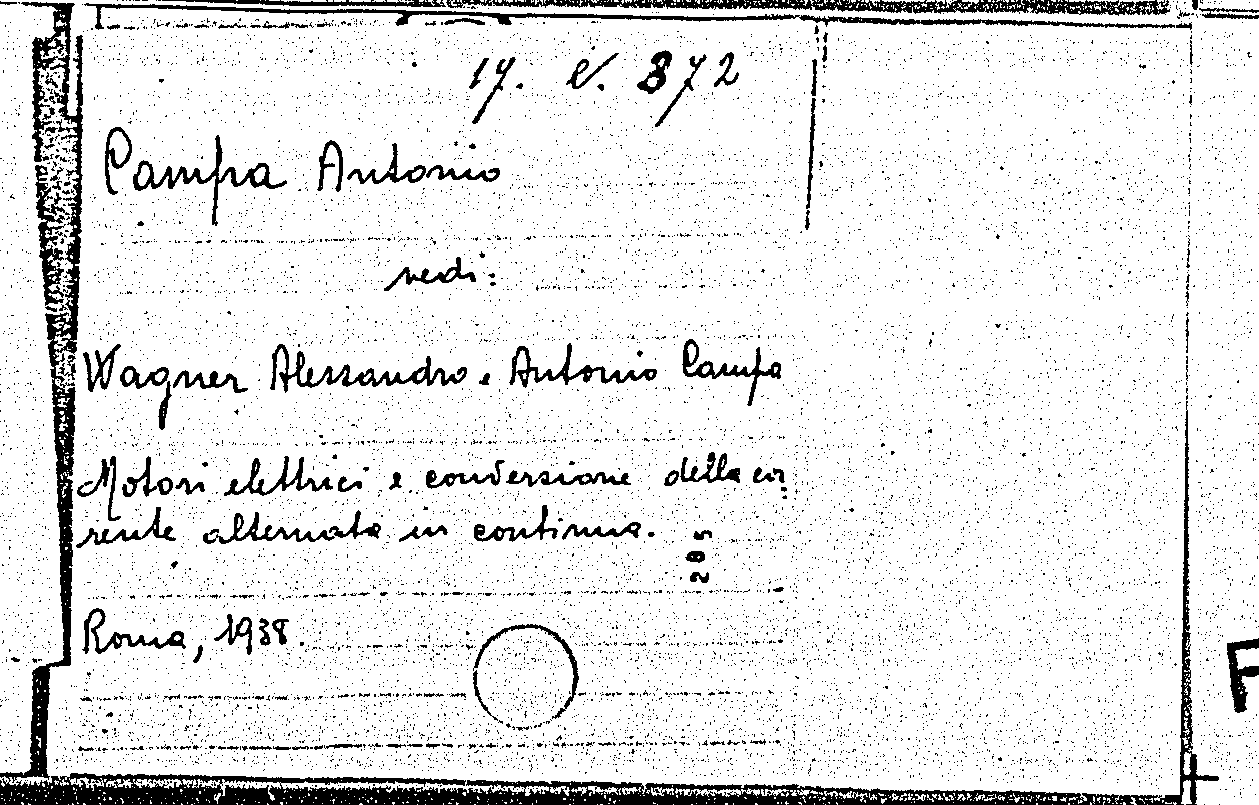 17. C. 872
Campa Antonio
vedi:
Wagner Alessandro e Antonio Campa
Motori elettrici e conversione della cor
rente alternata in continua.
205
Roma, 1938.
F